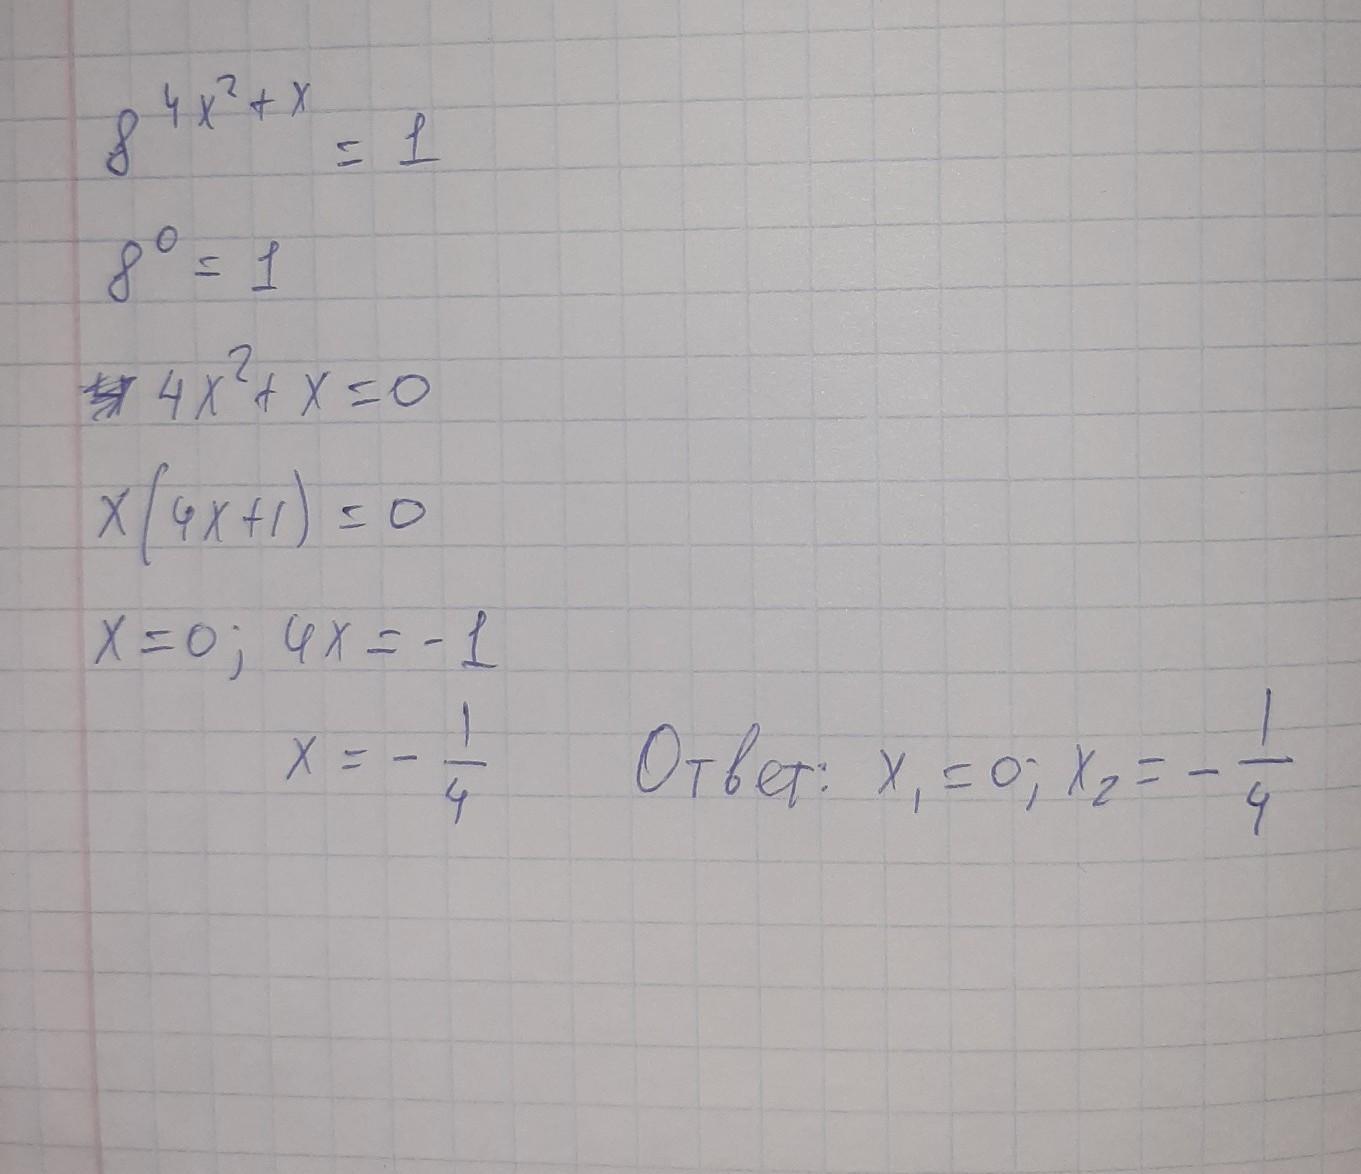 8^{4x²+x} = 1
8⁰ = 1
4x² + x = 0
x(4x+1) = 0
x = 0; 4x = -1
x = - 1/4
Ответ: x₁ = 0; x₂ = - 1/4